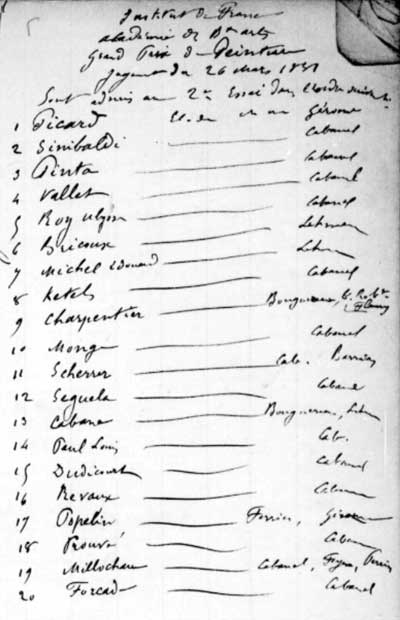 Institut de France
académie de Bx arts
Grand Prix de Peinture
Jugement du 26 mars 1881
Sont admis au 2e Essai dans l'ordre suivant
1 Picard El. de M Gérome
2 Sinibaldi Cabanel
3 Pinta Cabanel
4 Vallet Cabanel
5 Roy Ulysse Cabanel
6 Bricoux Lehmann
7 Michel Edouard Lehm
8 Ketels Cabanel
9 Charpentier Bouguereau, T. Robt Fleury
10 Monge Cabanel
11 Scherrer Cab. Barrias
12 Seguela Cabanel
13 Cabane Bouguereau, Lehm
14 Paul Louis Cab.
15 Dudicourt Cabanel
16 Revaux Cabanel
17 Popelin Ferrier, Gérome
18 Prouvé Cabanel
19 Millochau Cabanel,
20 Forcade Cabanel